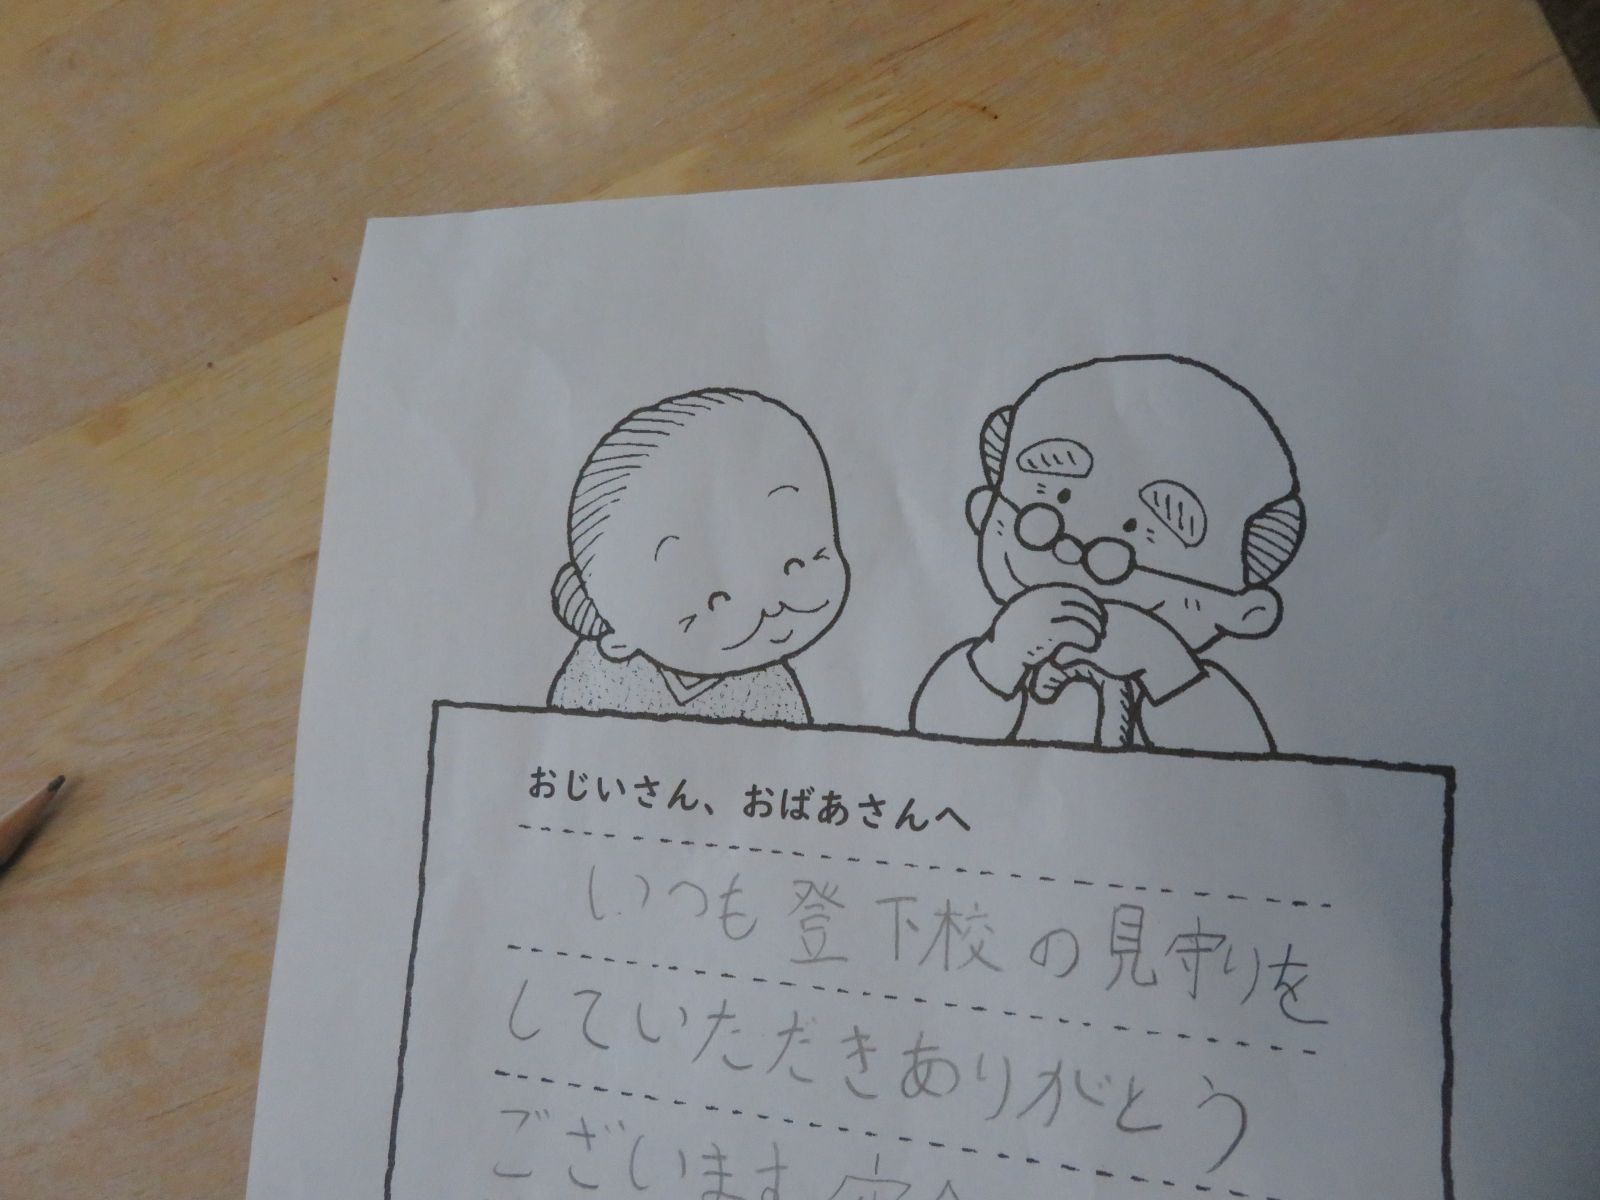 おじいさん、おばあさんへ
いつも登下校の見守りを
していただきありがとう
ございます